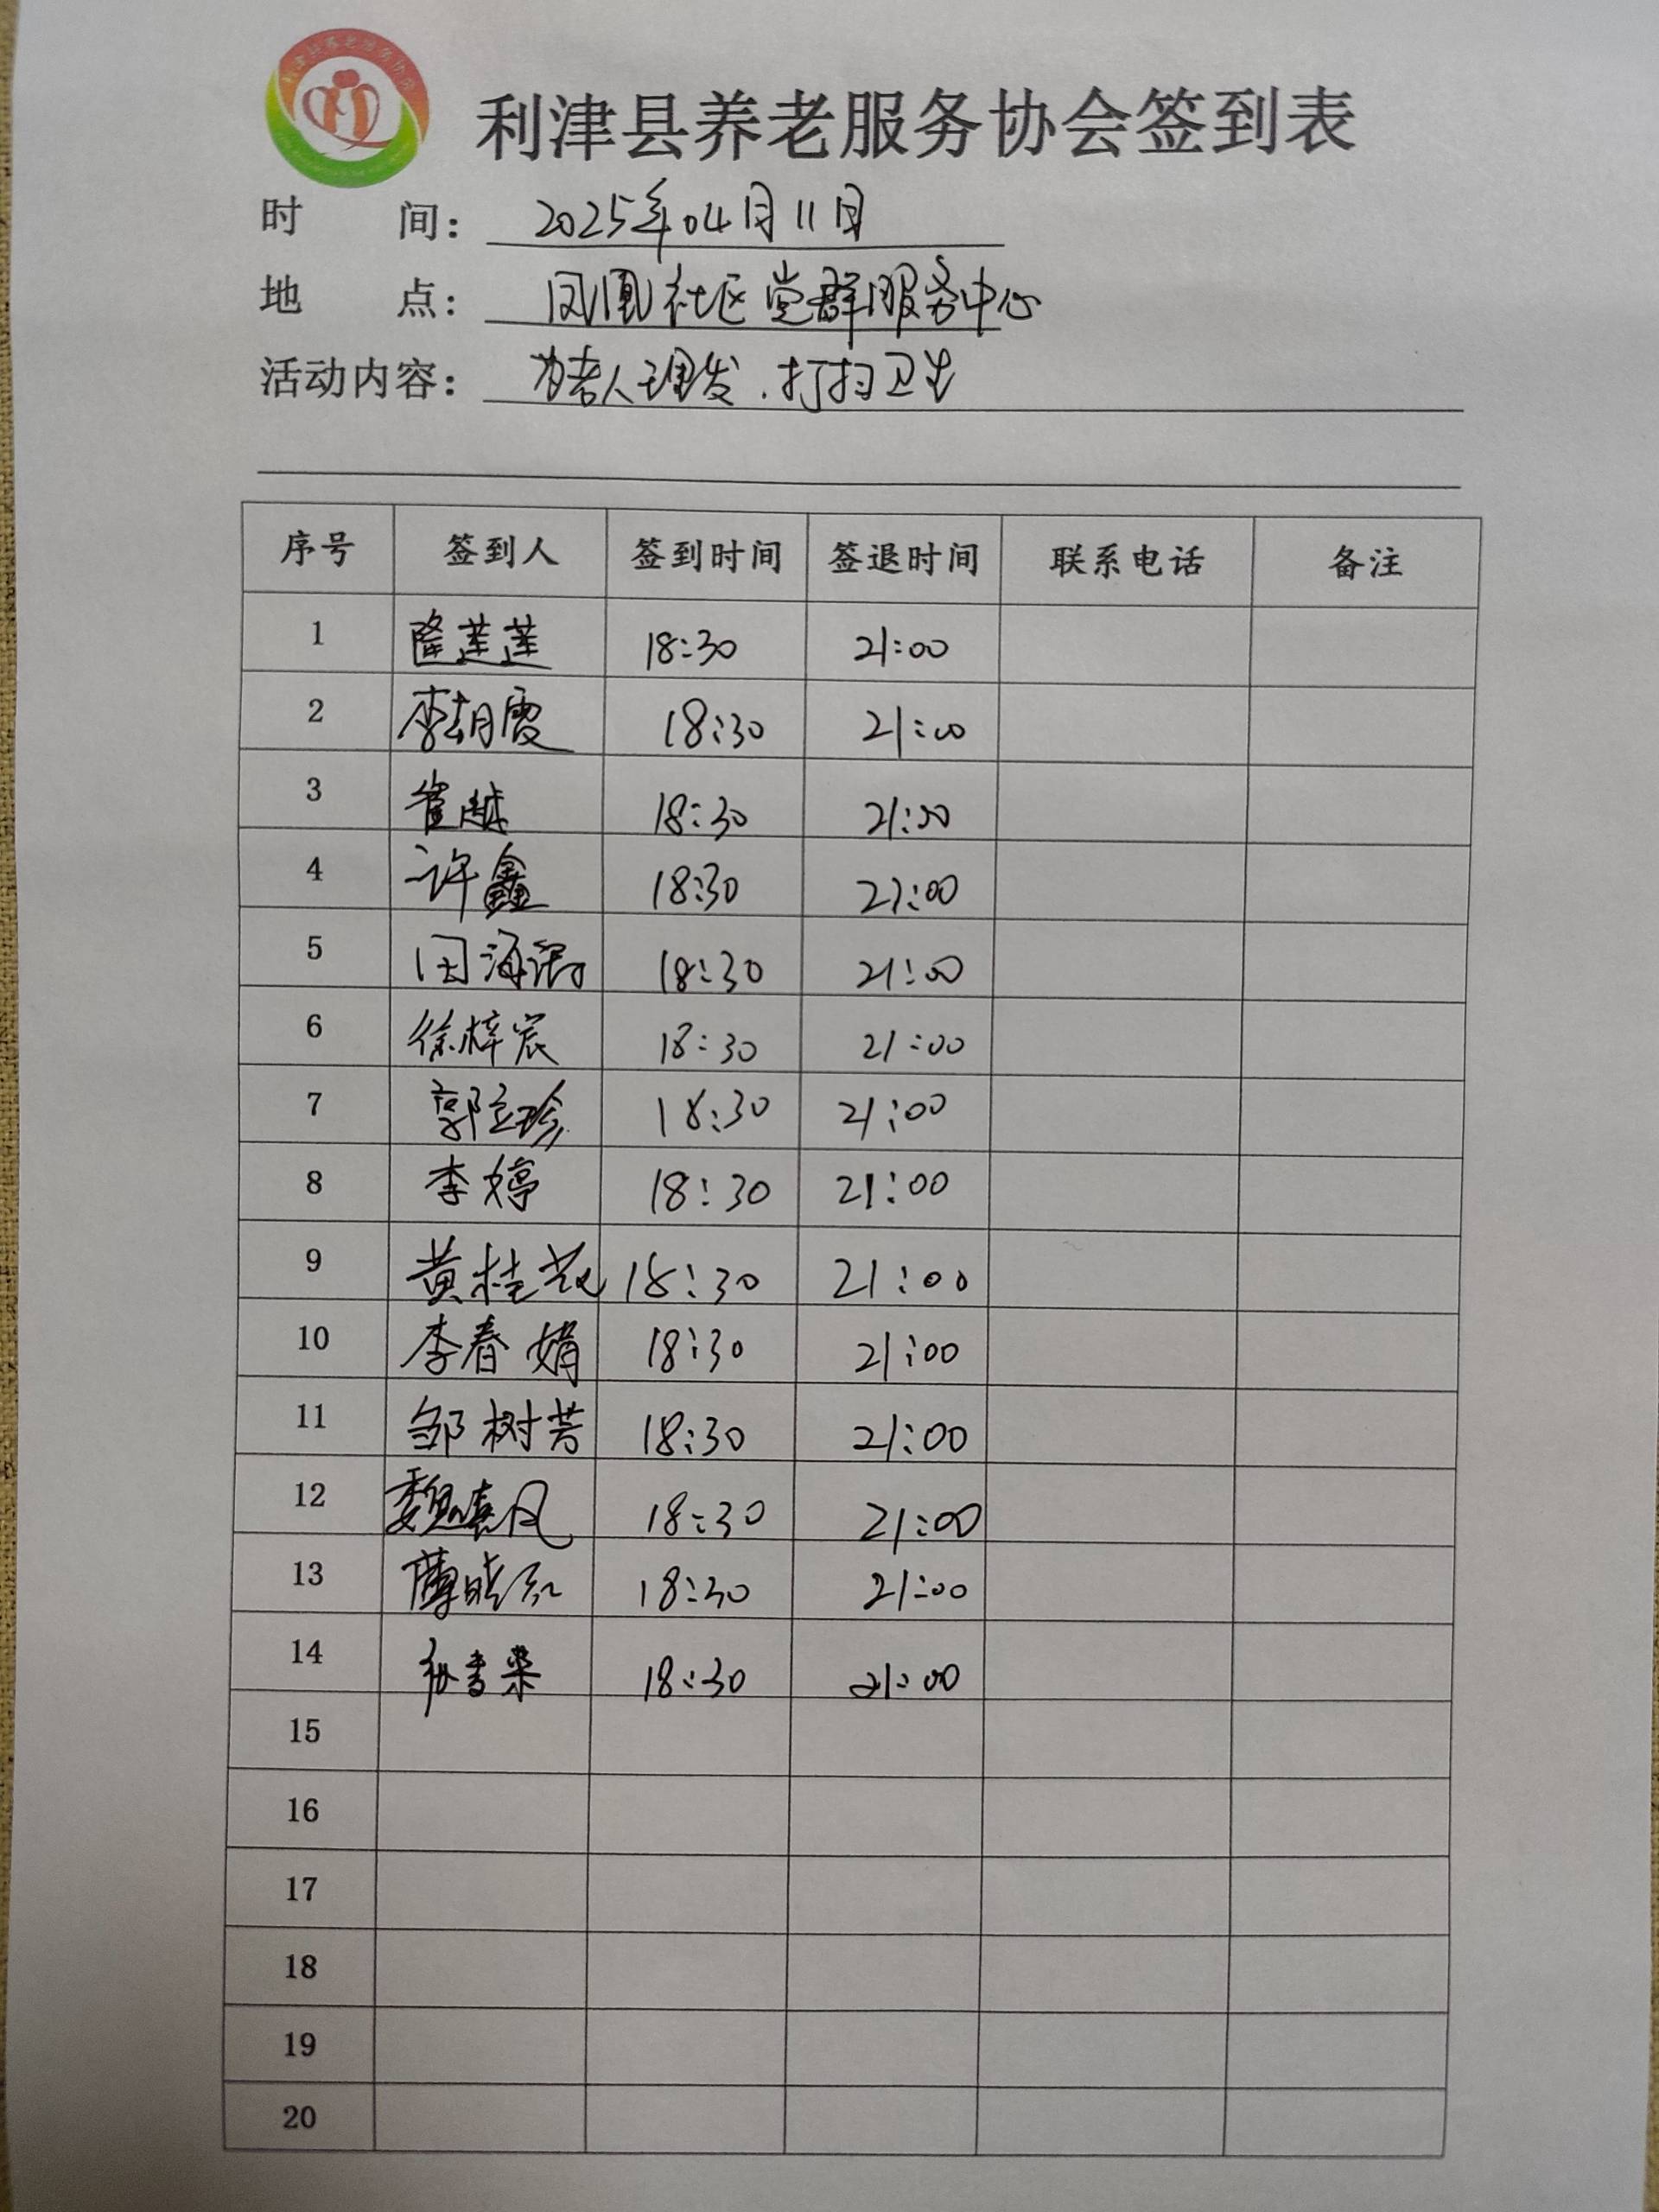 利津县养老服务协会
利津县养老服务协会签到表
时 间： 2025年04月11日
地 点： 凤凰社区党群服务中心
活动内容： 为老人理发、打扫卫生
序号 签到人 签到时间 签退时间 联系电话 备注
1 隆莲莲 18:30 21:00
2 李胡霞 18:30 21:00
3 崔越 18:30 21:00
4 许鑫 18:30 21:00
5 田海 18:30 21:00
6 徐梓宸 18:30 21:00
7 郭立珍 18:30 21:00
8 李婷 18:30 21:00
9 黄桂花 18:30 21:00
10 李春娟 18:30 21:00
11 邹树芳 18:30 21:00
12 魏春风 18:30 21:00
13 薄晓红 18:30 21:00
14 18:30 21:00
15
16
17
18
19
20